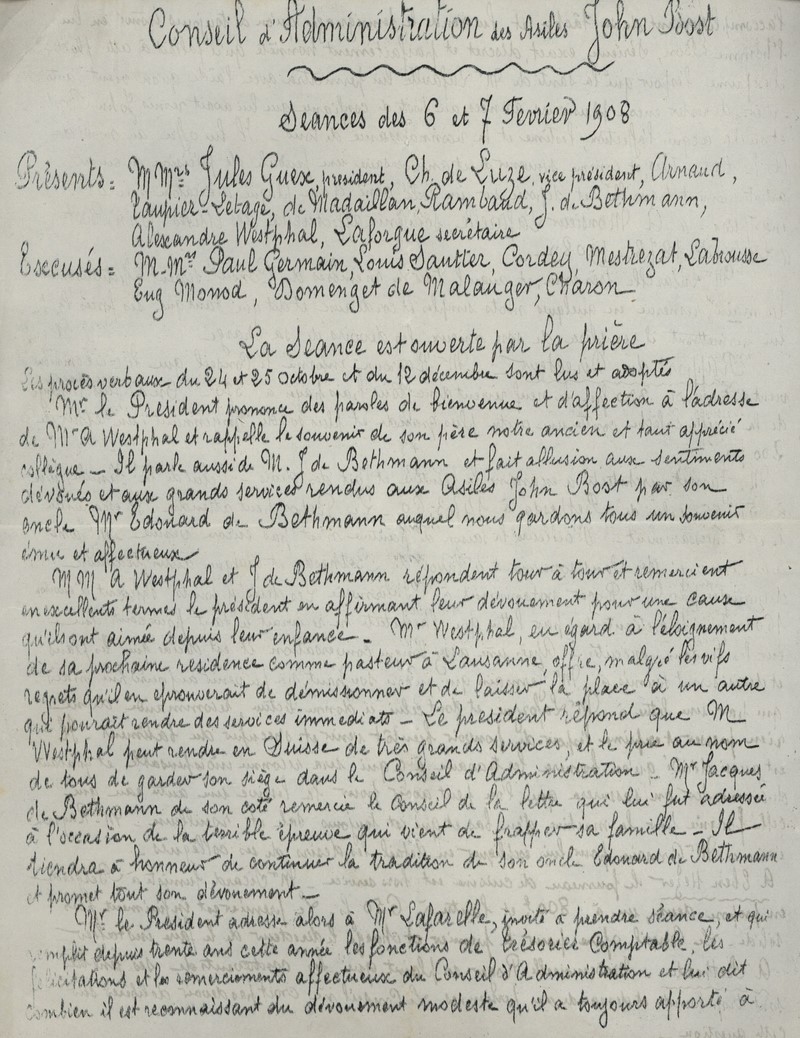 Conseil d'Administration des Asiles John Bost
Seances des 6 et 7 Fevrier 1908
Présents = M Mrs Jules Guex, president, Ch. de Luze, vice président, Arnaud,
Taupier-Letage, de Madaillan, Rambaud, J. de Bethmann,
Alexandre Westphal, Laforgue secrétaire
Excusés = M-Mrs Paul Germain, Louis Sautter, Cordey, Mestrezat, Labrousse
Eug Monod, Domenget de Malauger, Charon
La Seance est ouverte par la prière
Les procès verbaux du 24 et 25 octobre et du 12 décembre sont lus et adoptés
Mr le President prononce des paroles de bienvenue et d'affection à l'adresse
de Mr A Westphal et rappelle le souvenir de son père notre ancien et tant apprécié
collègue - Il parle aussi de M. J de Bethmann et fait allusion aux sentiments
dévoués et aux grands services rendus aux Asiles John Bost par son
oncle Mr Edouard de Bethmann auquel nous gardons tous un souvenir
ému et affectueux
M M A Westphal et J de Bethmann répondent tour à tour et remercient
en excellents termes le président en affirmant leur dévouement pour une cause
qu'ils ont aimée depuis leur enfance - Mr Westphal, eu égard à l'éloignement
de sa prochaine residence comme pasteur à Lausanne, offre, malgré les vifs
regrets qu'il en eprouverait de démissionner et de laisser la place à un autre
qui pourait rendre des services immediats - Le president répond que M
Westphal peut rendre en Suisse de très grands services, et le prie au nom
de tous de garder son siège dans le Conseil d'Administration - Mr Jacques
de Bethmann de son coté remercie le Conseil de la lettre qui lui fut adressée
à l'occasion de la terrible épreuve qui vient de frapper sa famille - Il
tiendra à honneur de continuer la tradition de son oncle Edouard de Bethmann
et promet tout son dévouement -
Mr le President adresse alors à Mr Lafarelle, invité à prendre séance, et qui
remplit depuis trente ans cette année les fonctions de trésorier Comptable, les
félicitations et les remerciements affectueux du Conseil d'Administration et lui dit
combien il est reconnaissant du dévouement modeste qu'il a toujours apporté à